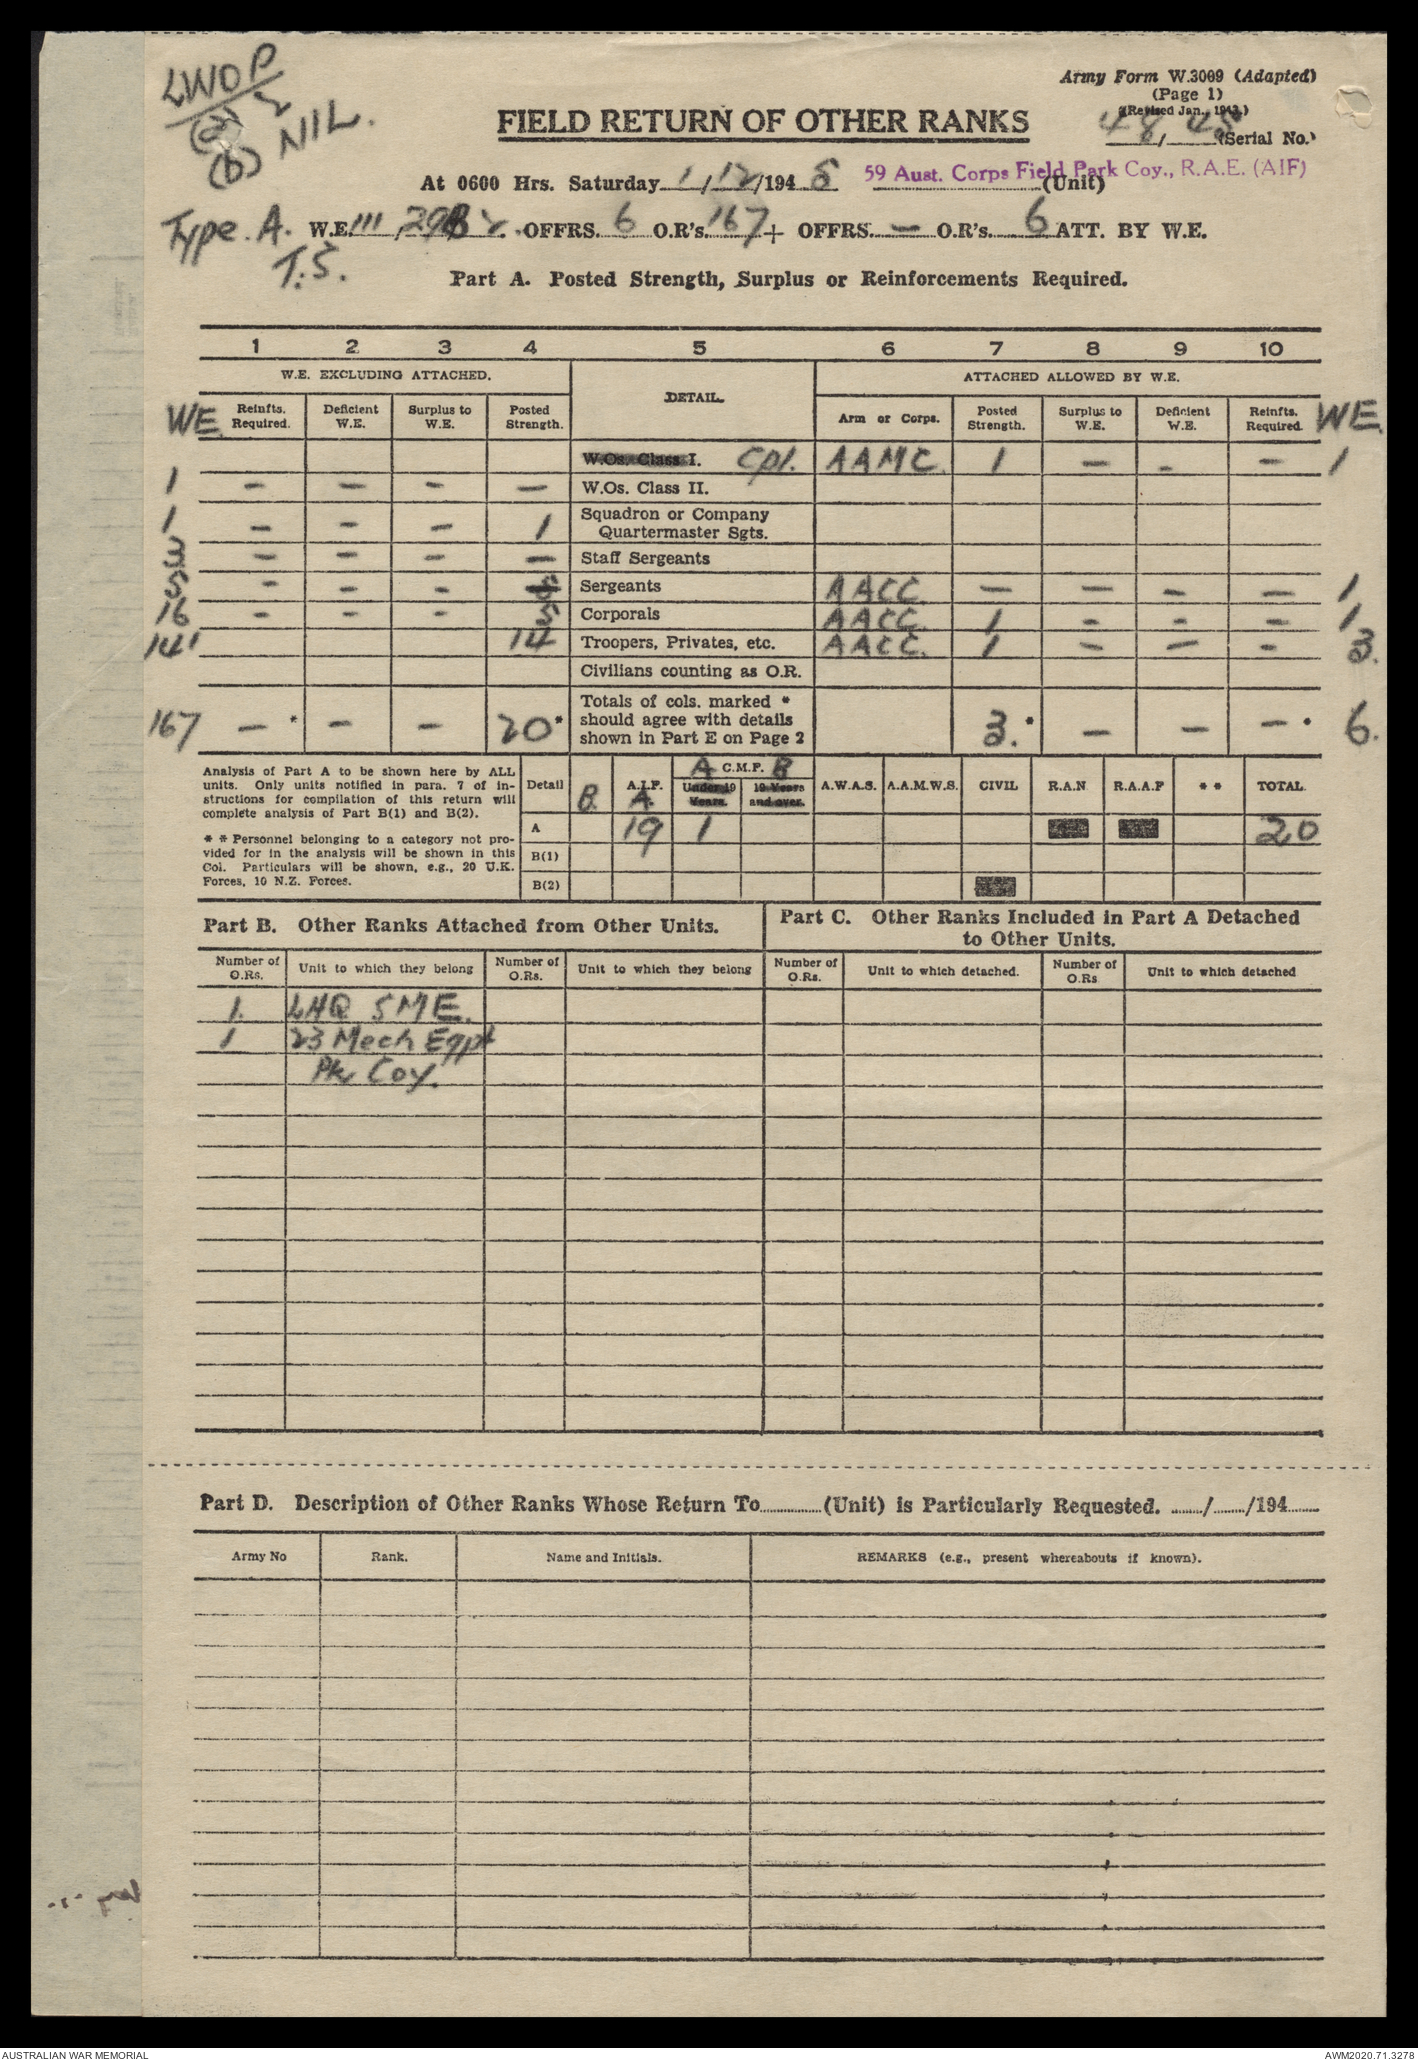 LWOP
(a)
(b) NIL.
Army Form W.3009 (Adapted)
(Page 1)
(Revised Jan., 1943.)
FIELD RETURN OF OTHER RANKS
48/45 (Serial No.)
At 0600 Hrs. Saturday 1/12/1945 59 Aust. Corps Field Park Coy., R.A.E. (AIF) (Unit)
Type A. W.E. III OFFRS. 6 O.R's. 167 + OFFRS. — O.R's. 6 ATT. BY W.E.
T.S.
Part A. Posted Strength, Surplus or Reinforcements Required.
1 2 3 4 5 6 7 8 9 10
W.E. EXCLUDING ATTACHED. DETAIL. ATTACHED ALLOWED BY W.E.
WE. Reinfts. Required. Deficient W.E. Surplus to W.E. Posted Strength. Arm or Corps. Posted Strength. Surplus to W.E. Deficient W.E. Reinfts. Required. WE.
W.Os. Class I. Cpl. AAMC 1 — - — 1
1 — — — — W.Os. Class II.
1 — — — 1 Squadron or Company Quartermaster Sgts.
3 — — — — Staff Sergeants
5 - - - Sergeants AACC. — — - — 1
16 - - - 5 Corporals AACC. 1 - - - 1
141 14 Troopers, Privates, etc. AACC. 1 - — - 3.
Civilians counting as O.R.
167 — * — — 20 * Totals of cols. marked * should agree with details shown in Part E on Page 2 3. * — — — • 6.
Analysis of Part A to be shown here by ALL units. Only units notified in para. 7 of instructions for compilation of this return will complete analysis of Part B(1) and B(2).
* * Personnel belonging to a category not provided for in the analysis will be shown in this Col. Particulars will be shown, e.g., 20 U.K. Forces, 10 N.Z. Forces.
Detail B. A.I.F. A. A C.M.F. B Under 19 Years. 19 Years and over. A.W.A.S. A.A.M.W.S. CIVIL R.A.N R.A.A.F * * TOTAL
A 19 1 20
B(1)
B(2)
Part B. Other Ranks Attached from Other Units.
Part C. Other Ranks Included in Part A Detached
to Other Units.
Number of O.Rs. Unit to which they belong Number of O.Rs. Unit to which they belong Number of O.Rs. Unit to which detached. Number of O.Rs Unit to which detached
1. LHQ SME.
1 23 Mech Eqpt
Pk Coy.
Part D. Description of Other Ranks Whose Return To.......... (Unit) is Particularly Requested. ....../....../194......
Army No Rank. Name and Initials. REMARKS (e.g., present whereabouts if known).
AUSTRALIAN WAR MEMORIAL AWM2020.71.3278